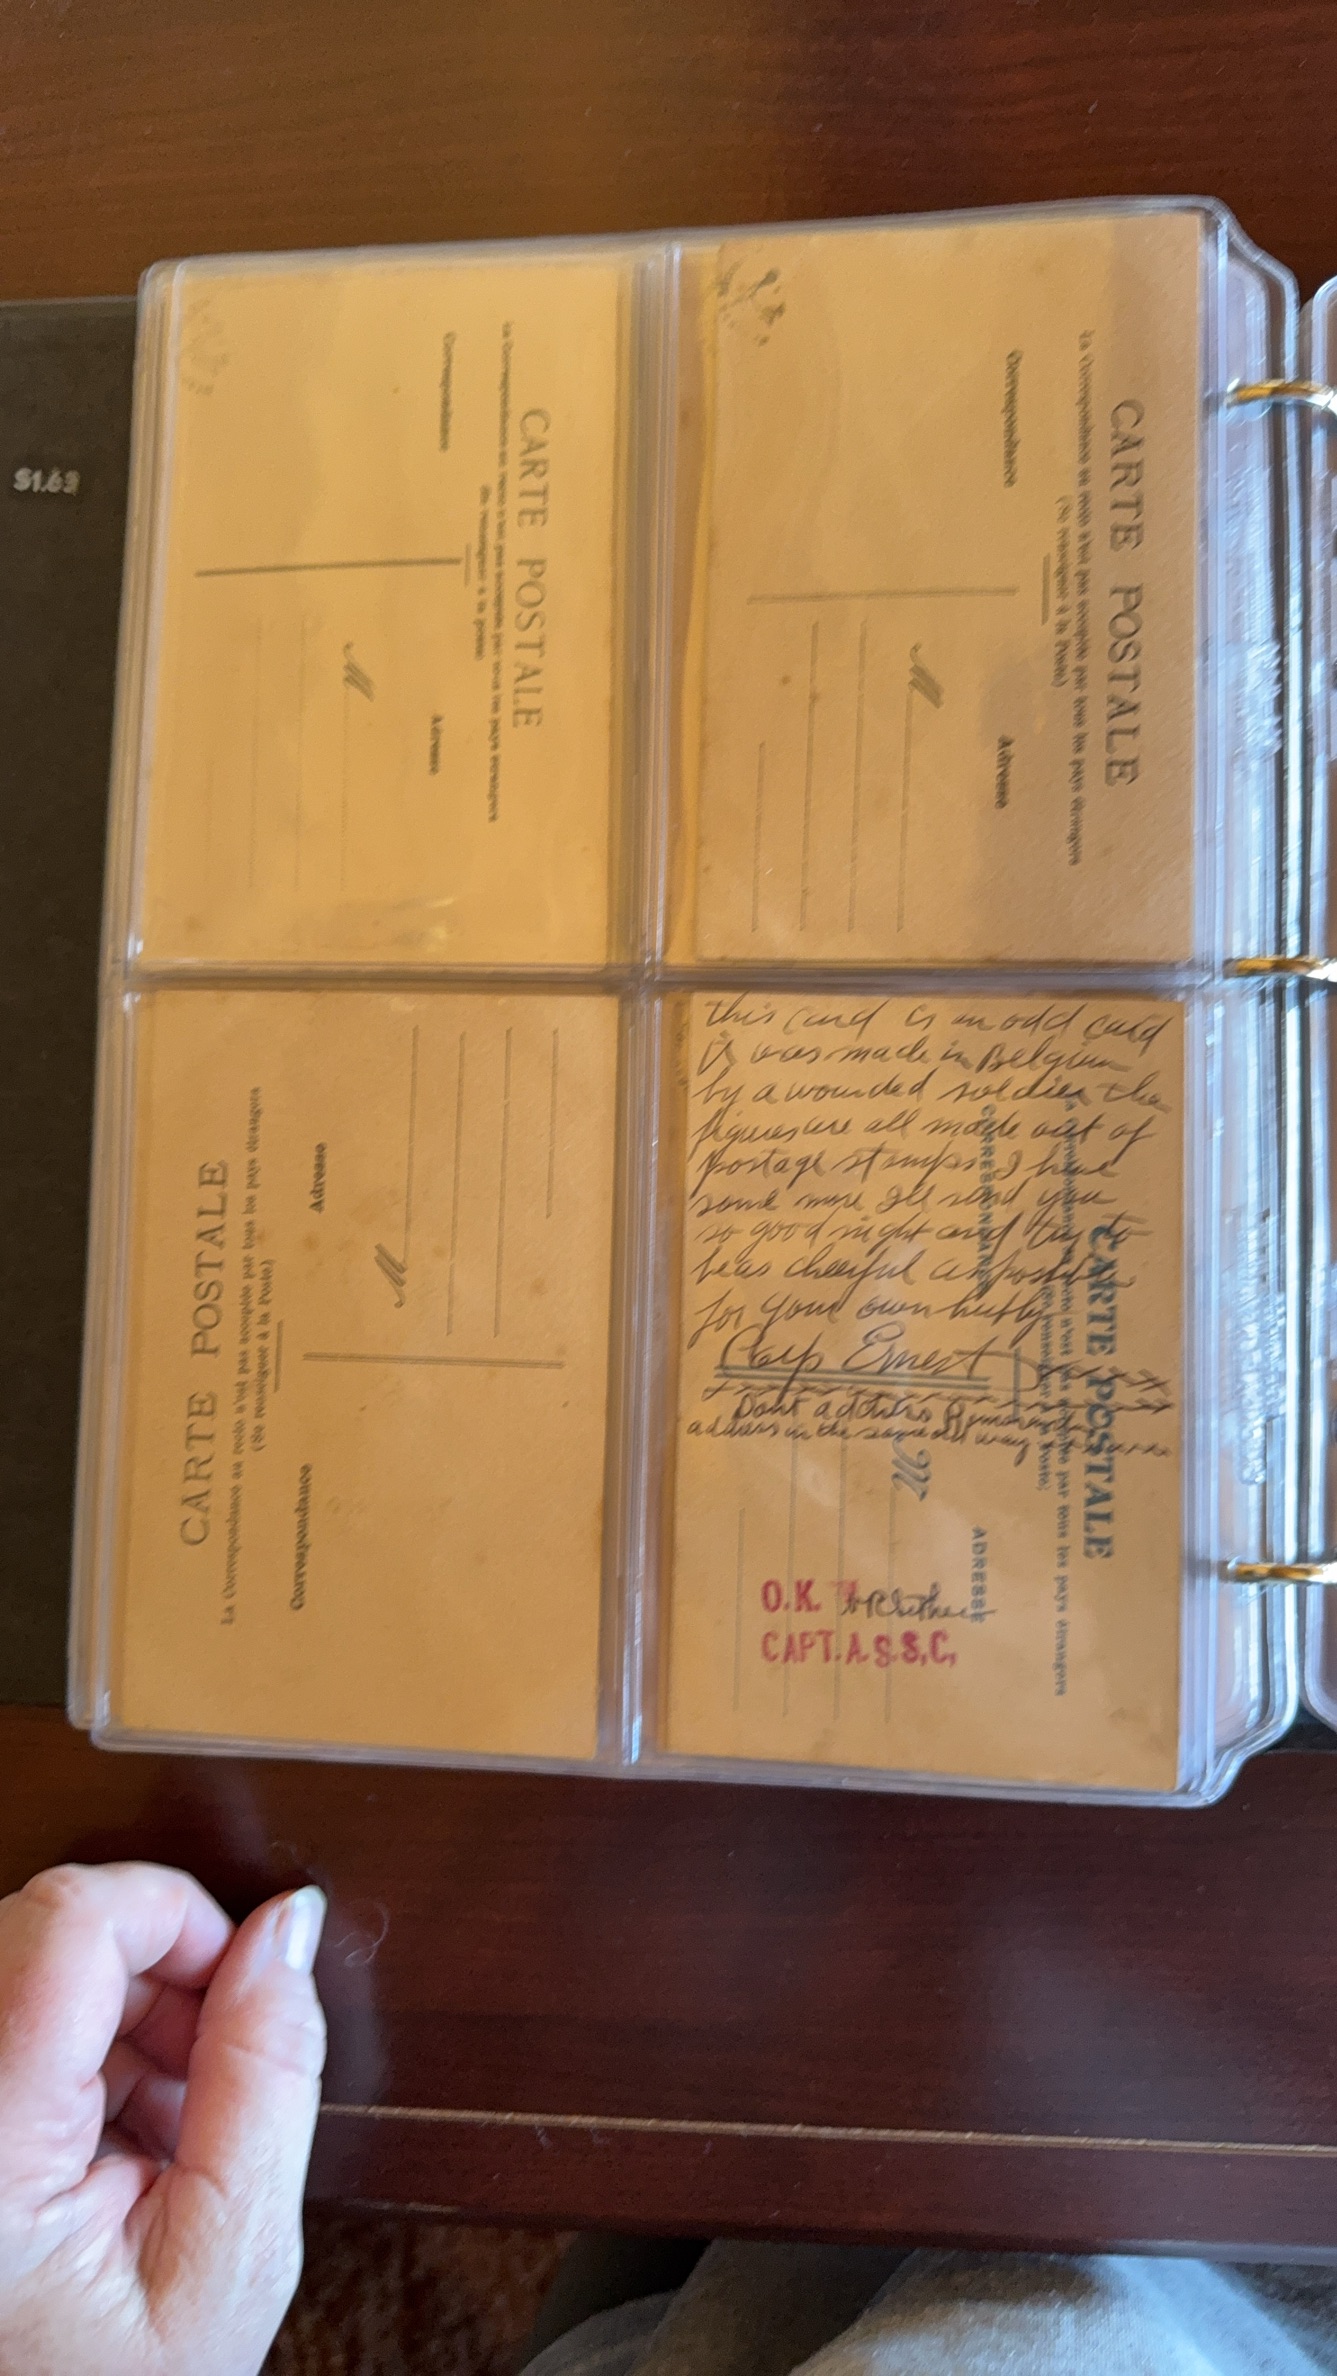 $1.63
CARTE POSTALE
La Correspondance au recto n'est pas acceptée par tous les pays étrangers
(Se renseigner à la poste)
Correspondance
Adresse
M
CARTE POSTALE
La Correspondance au recto n'est pas acceptée par tous les pays étrangers
(Se renseigner à la Poste)
Correspondance
Adresse
M
CARTE POSTALE
La Correspondance au recto n'est pas acceptée par tous les pays étrangers
(Se renseigner à la Poste)
Correspondance
Adresse
M
this card is an odd card
it was made in Belgium
by a wounded soldier the
figures are all made out of
postage stamps I have
some more Ill send you
so good night and try to
be as cheerful as possible
for your own
Corp Ernest
Dont address
address in the same old way
CARTE POSTALE
n'est pas acceptée par tous les pays étrangers
(Se renseigner à la Poste)
CORRESPONDANCE
ADRESSE
M
O.K.
CAPT. A.S.S.C.